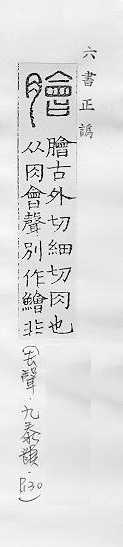 六書正譌
膾
膾古外切細切肉也
从肉會聲別作鱠非
(去聲．九泰韻．P.130)